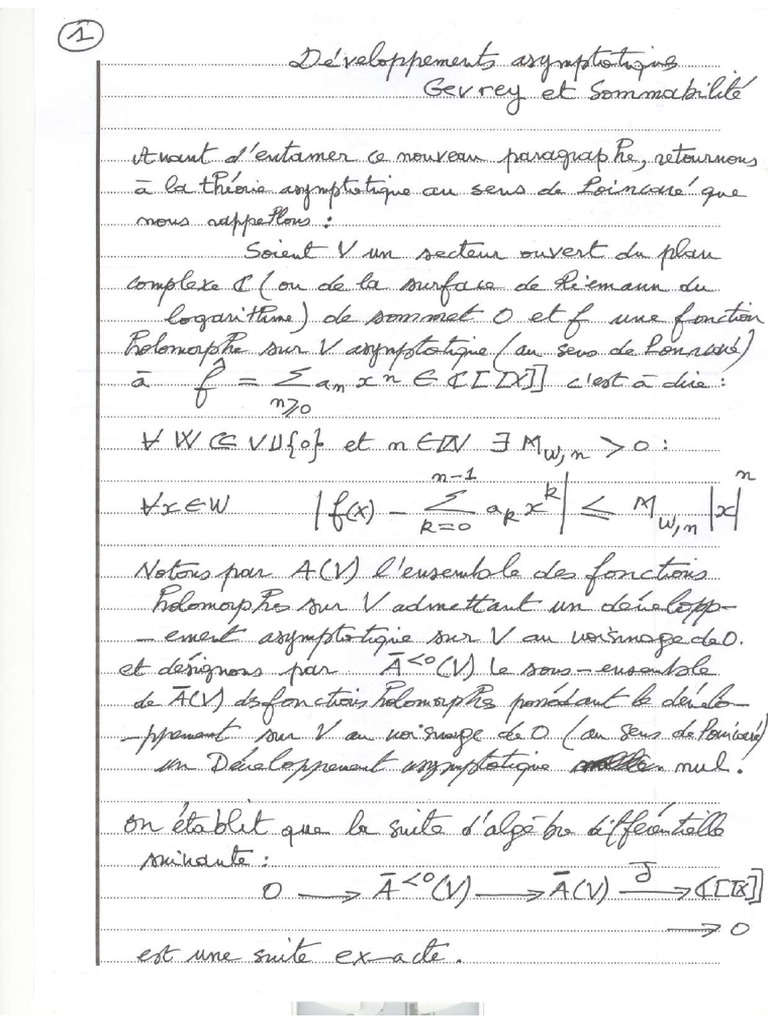 1
Développements asymptotiques
Gevrey et Sommabilité
Avant d'entamer ce nouveau paragraphe, retournons
à la théorie asymptotique au sens de Poincaré que
nous rappellons :
Soient V un secteur ouvert du plan
complexe ℂ (ou de la surface de Riemann du
logarithme) de sommet 0 et f une fonction
holomorphe sur V asymptotique (au sens de Poincaré)
à f̂ = Σ_{n≥0} a_n x^n ∈ ℂ[[X]] c'est à dire :
∀ W ⋐ V∪{0} et n ∈ ℕ ∃ M_{W,n} > 0 :
∀x ∈ W |f(x) - Σ_{k=0}^{n-1} a_k x^k| ≤ M_{W,n} |x|^n
Notons par A(V) l'ensemble des fonctions
holomorphes sur V admettant un développ-
-ement asymptotique sur V au voisinage de 0.
et désignons par Ā^{<0}(V) le sous-ensemble
de Ā(V) des fonctions holomorphes possédant le dévelo-
-ppement sur V au voisinage de 0 (au sens de Poincaré)
un Développement asymptotique nul.
on établit que la suite d'algèbre différentielle
suivante :
0 → Ā^{<0}(V) → Ā(V) →^{J} ℂ[[X]]
→ 0
est une suite exacte.